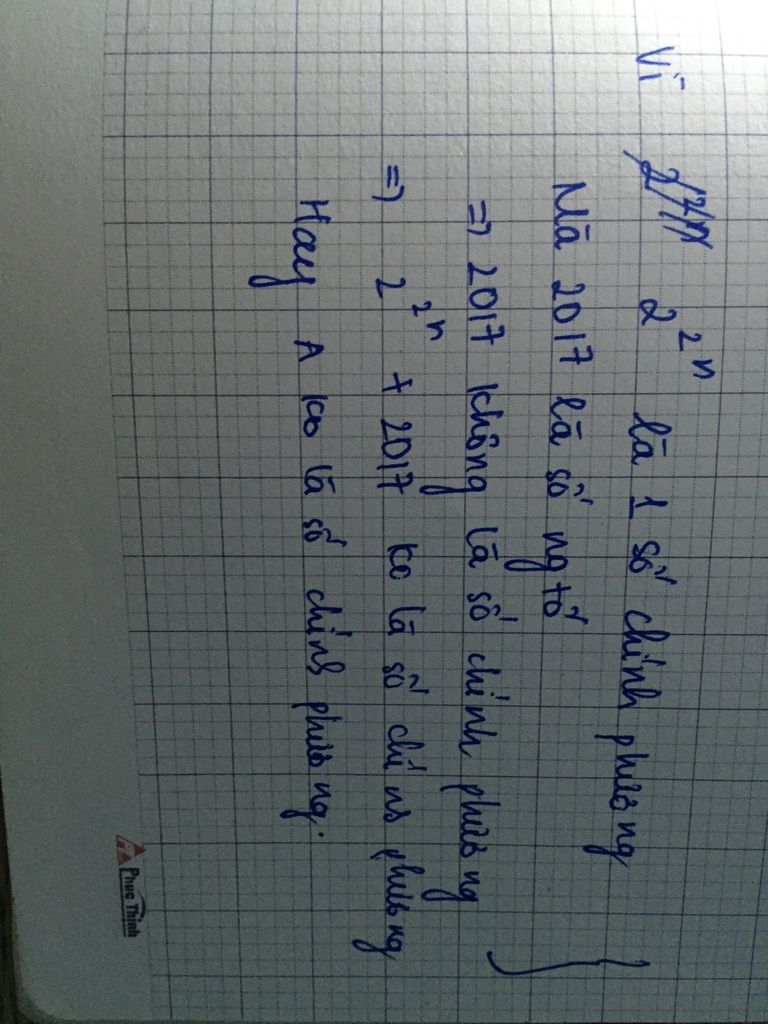 Vì 2²ⁿ 2²ⁿ là 1 số chính phương
Mà 2017 là số ng tố
=> 2017 không là số chính phương
=> 2²ⁿ + 2017 ko là số chính phương
Hay A ko là số chính phương.
Phuc Thịnh